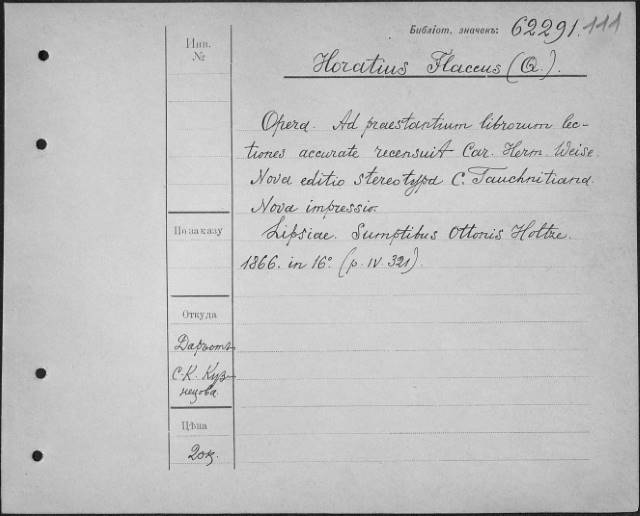 Библіот. значекъ: 62291.111
Инв.
№
Horatius Flaccus (Q.).
Opera. Ad praestantium librorum lec-
tiones accurate recensuit Car. Herm. Weise.
Nova editio stereotypa C. Tauchnitiana.
Nova impressio.
По заказу
Lipsiae. Sumptibus Ottonis Holtze.
1866. in 16°. (p. IV. 321).
Откуда
Даръ отъ
С. К. Куз-
нецова
Цѣна
20к.